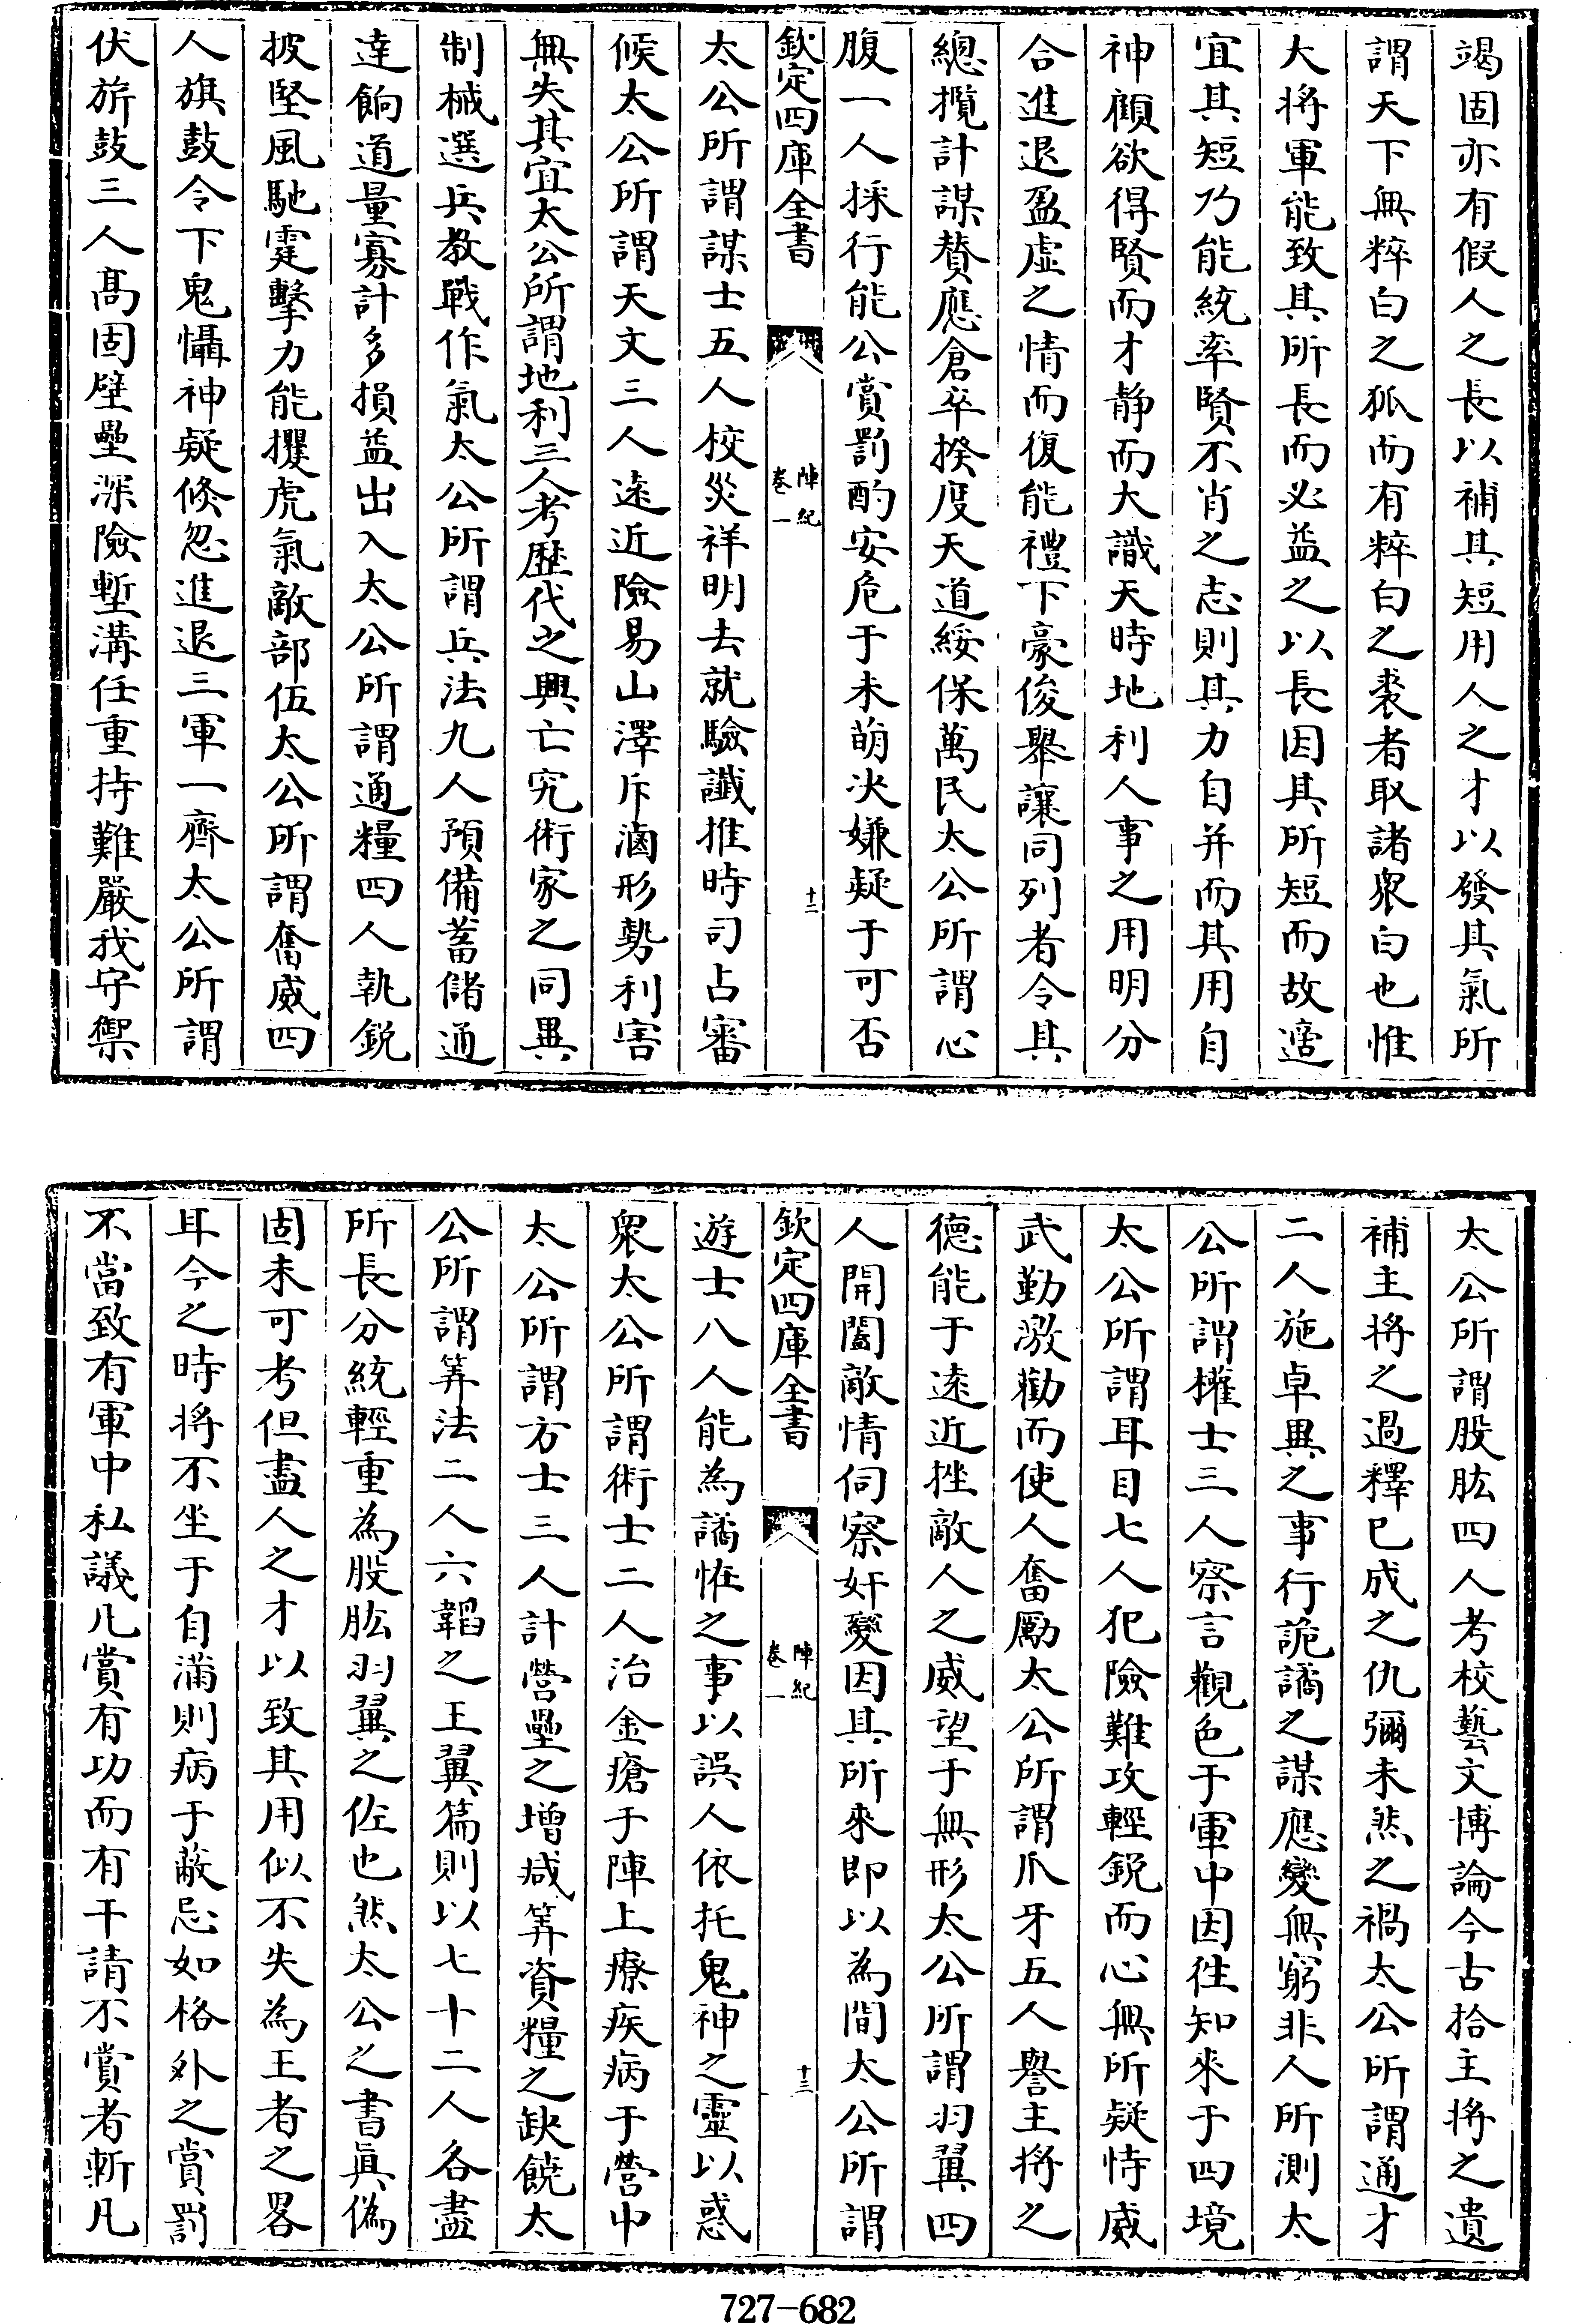 竭固亦有假人之長以補其短用人之才以發其氣所
謂天下無粹白之狐而有粹白之裘者取諸衆白也惟
大將軍能致其所長而必益之以長因其所短而故適
宜其短乃能統率賢不肖之志則其力自并而其用自
神顧欲得賢而才静而大識天時地利人事之用明分
合進退盈虛之情而復能禮下豪俊舉讓同列者令其
總攬計謀賛應倉卒揆度天道綏保萬民太公所謂心
腹一人採行能公賞罰酌安危于未萌决嫌疑于可否
欽定四庫全書
陣紀
卷一
十二
太公所謂謀士五人校災祥明去就驗讖推時司占審
候太公所謂天文三人遠近險易山澤斥滷形勢利害
無失其宜太公所謂地利三人考歷代之興亡究術家之同異
制械選兵教戰作氣太公所謂兵法九人預備蓄儲通
達餉道量寡計多損益出入太公所謂通糧四人執鋭
披堅風馳霆擊力能攫虎氣敵部伍太公所謂奮威四
人旗鼓令下鬼懾神疑倐忽進退三軍一齊太公所謂
伏旂鼓三人髙固壁壘深險塹溝任重持難嚴我守禦
太公所謂股肱四人考校藝文博論今古拾主將之遺
補主將之過釋已成之仇彌未然之禍太公所謂通才
二人施卓異之事行詭譎之謀應變無窮非人所測太
公所謂權士三人察言觀色于軍中因徃知來于四境
太公所謂耳目七人犯險難攻輕鋭而心無所疑恃威
武勤激勸而使人奮勵太公所謂爪牙五人譽主將之
德能于遠近挫敵人之威望于無形太公所謂羽翼四
人開闔敵情伺察奸變因其所來即以為間太公所謂
欽定四庫全書
陣紀
卷一
十三
遊士八人能為譎恠之事以誤人依托鬼神之靈以惑
衆太公所謂術士二人治金瘡于陣上療疾病于營中
太公所謂方士三人計營壘之增減筭資糧之缺饒太
公所謂筭法二人六韜之王翼篇則以七十二人各盡
所長分統輕重為股肱羽翼之佐也然太公之書眞偽
固未可考但盡人之才以致其用似不失為王者之畧
耳今之時將不坐于自滿則病于蔽忌如格外之賞罰
不當致有軍中私議凡賞有功而有干請不賞者斬凡
727-682